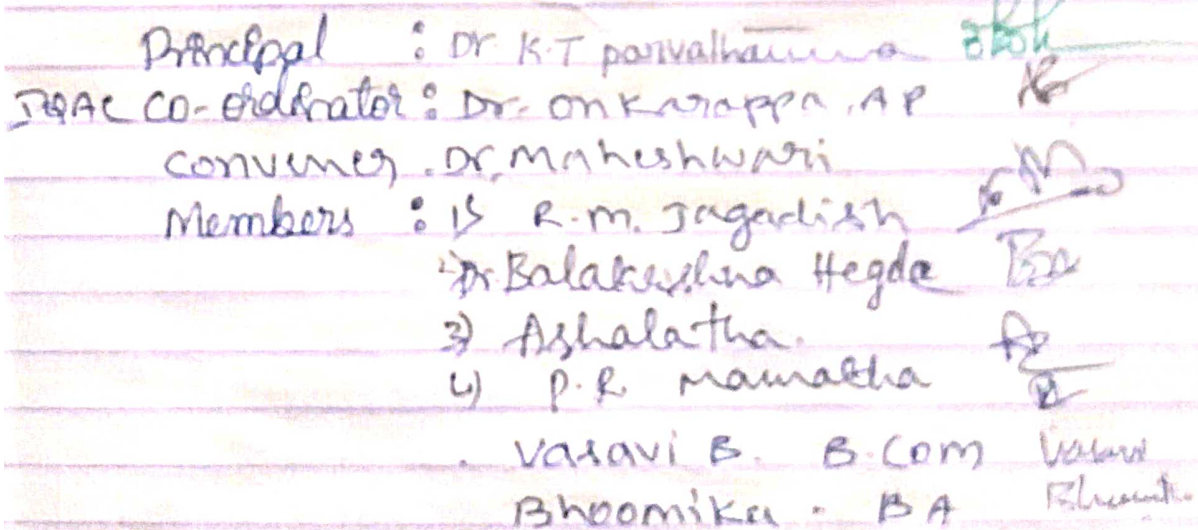 Principal : Dr. K.T parvathamma
IQAC CO-ordinator : Dr. Onkarappa .A P
Convener . Dr. Maheshwari
Members : 1) R.m. Jagadish
2) Dr Balakrishna Hegde
3) Ashalatha.
4) P.R. mamatha
. Vasavi B. B.Com Vasavi
Bhoomika . BA